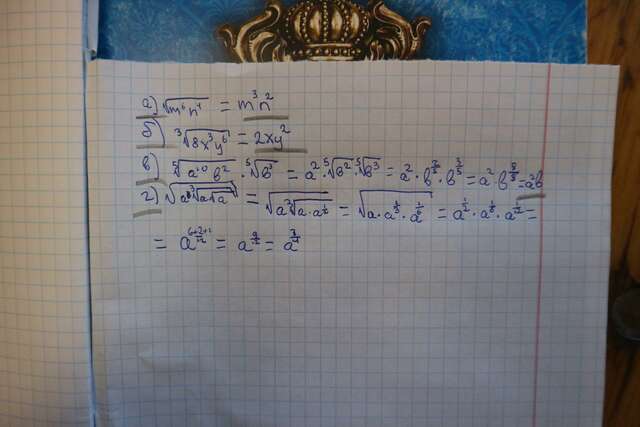 а) √m⁶n⁴ = m³n²
б) ³√8x³y⁶ = 2xy²
в) ⁵√a¹⁰b² · ⁵√b³ = a² · ⁵√b² · ⁵√b³ = a² · b^(2/5) · b^(3/5) = a² · b^(5/5) = a²b
г) √(a ³√(a√a)) = √(a ³√(a · a^(1/2))) = √(a · a^(1/3) · a^(1/6)) = a^(1/2) · a^(1/6) · a^(1/12) =
= a^((6+2+1)/12) = a^(9/12) = a^(3/4)